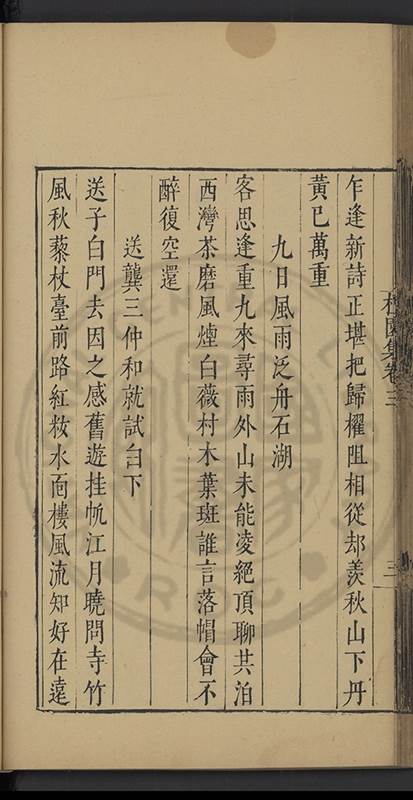 乍逢新詩正堪把歸櫂阻相從却羨秋山下丹
黃已萬重
九日風雨泛舟石湖
客思逢重九來尋雨外山未能凌絕頂聊共泊
西灣茶磨風煙白薇村木葉斑誰言落帽會不
醉復空還
送龔三仲和就試白下
送子白門去因之感舊遊挂帆江月曉問寺竹
風秋藜杖臺前路紅妝水面樓風流知好在遠
集卷三
三